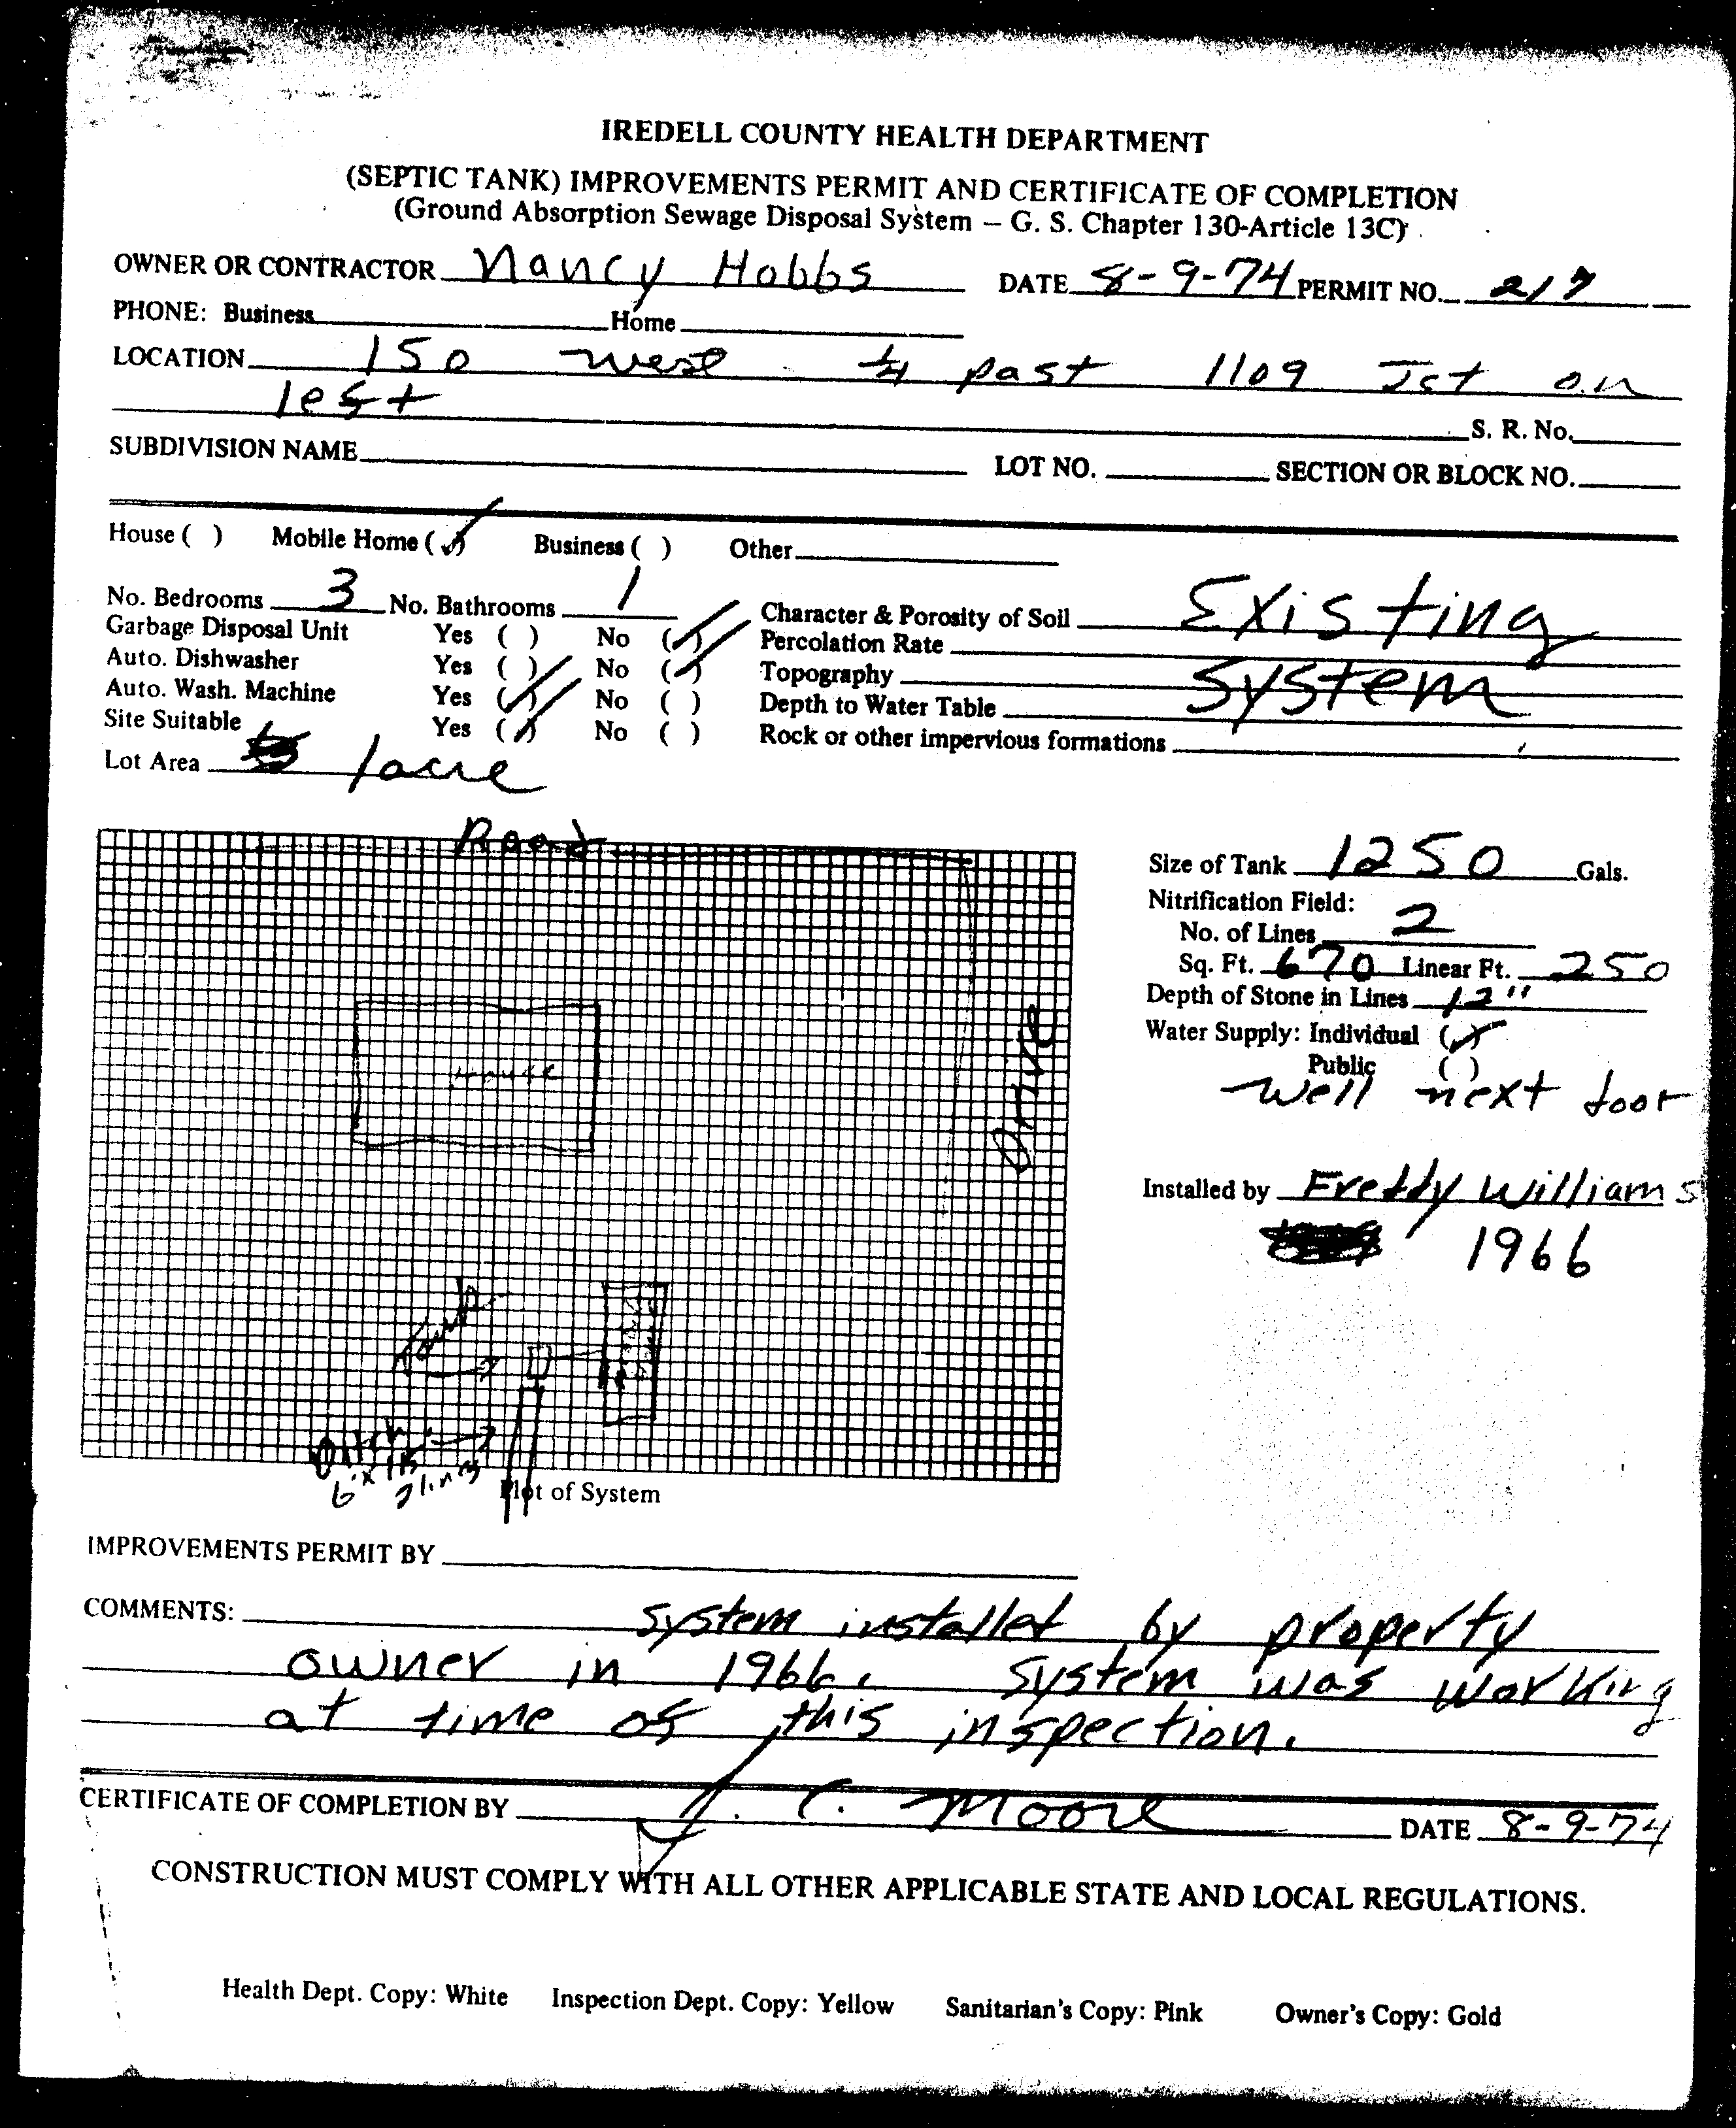 IREDELL COUNTY HEALTH DEPARTMENT
(SEPTIC TANK) IMPROVEMENTS PERMIT AND CERTIFICATE OF COMPLETION
(Ground Absorption Sewage Disposal System – G. S. Chapter 130-Article 13C)
OWNER OR CONTRACTOR Nancy Hobbs DATE 8-9-74 PERMIT NO. 217
PHONE: Business Home
LOCATION 150 west 1/4 past 1109 Jct on
left
S. R. No.
SUBDIVISION NAME LOT NO. SECTION OR BLOCK NO.
House ( ) Mobile Home (✓) Business ( ) Other
No. Bedrooms 3 No. Bathrooms 1 Character & Porosity of Soil Existing
Garbage Disposal Unit Yes ( ) No (✓) Percolation Rate
Auto. Dishwasher Yes ( ) No (✓) Topography System
Auto. Wash. Machine Yes (✓) No ( ) Depth to Water Table
Site Suitable Yes (✓) No ( ) Rock or other impervious formations
Lot Area 1 acre
Road
Size of Tank 1250 Gals.
Nitrification Field:
No. of Lines 2
Sq. Ft. 670 Linear Ft. 250
Depth of Stone in Lines 12"
Water Supply: Individual (✓)
Public ( )
Well next door
House
Drive
Installed by Freddy Williams
1966
Tank
Ditch
2 lines
Plot of System
IMPROVEMENTS PERMIT BY
COMMENTS: System installed by property
owner in 1966. System was working
at time of this inspection.
CERTIFICATE OF COMPLETION BY J. C. Moore DATE 8-9-74
CONSTRUCTION MUST COMPLY WITH ALL OTHER APPLICABLE STATE AND LOCAL REGULATIONS.
Health Dept. Copy: White Inspection Dept. Copy: Yellow Sanitarian's Copy: Pink Owner's Copy: Gold